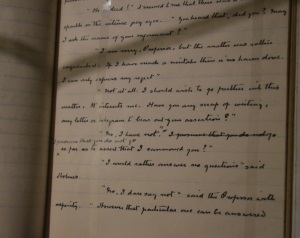 "He indeed!" I seemed to see that there was a
sparkle in the vicious grey eyes. "You heard that, did you? May
I ask the name of your informant?"
"I am sorry, Professor, but the matter was rather
confidential. If I have made a mistake there is no harm done.
I can only express my regret"
"Not at all. I should wish to go further into this
matter. It interests me. Have you any scrap of writing,
any letter or telegram to bear out your assertion?"
"No, I have not."
I presume that you do not go
so far as to assert that I summoned you?"
"I would rather answer no questions" said
Holmes.
"No, I dare say not" said the Professor with
asperity. "However that particular one can be answered